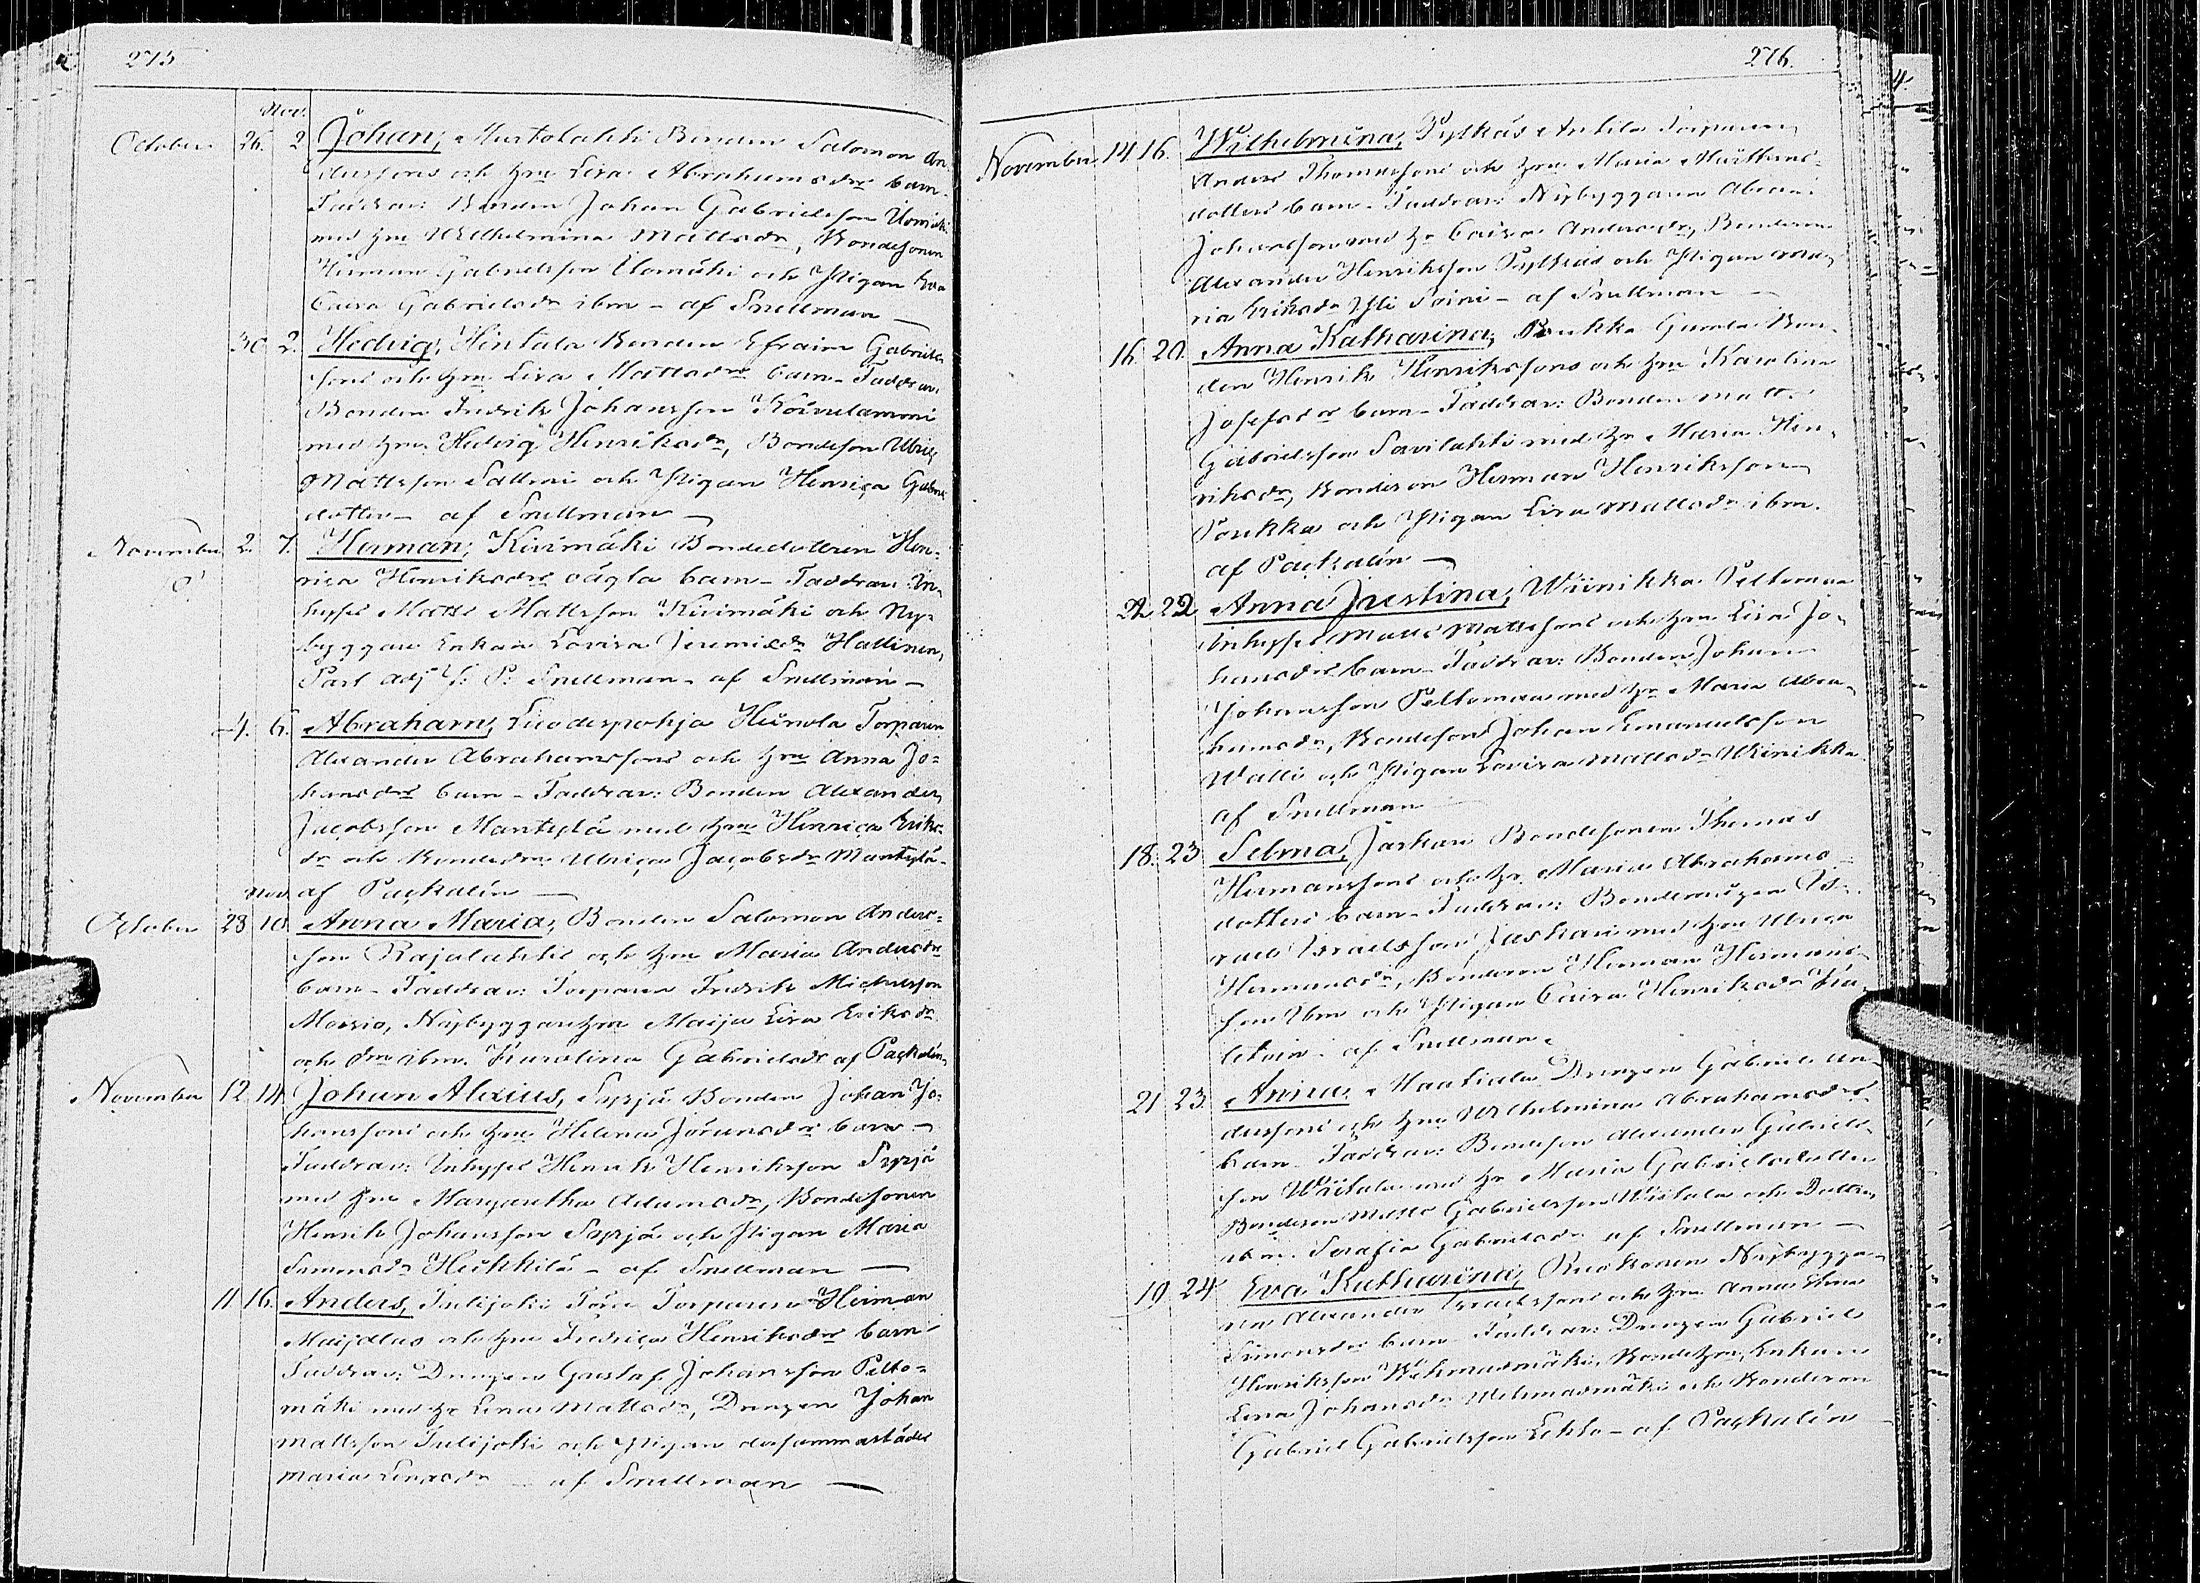 275
Nov.
October 26. 2 Johan, Murtolahti Bonden Salomon An-
derssons och hm Lisa Abrahamsdrs barn.
Faddrar: Bonden Johan Gabrielsson Uomäki
med hm Wilhelmina Mattsdr, Bondesonen
Herman Gabrielsson Uomäki och Pigan Eva
Caisa Gabrielsdr ibm - af Snellman
30. 2. Hedvig, Hintala Bonden Efraim Gabriels
sons och hm Lisa Mattsdrs barn - Faddrar.
Bonden Fredrik Johansson Koivulammi
med hm Hedvig Henriksdr, Bondeson Ulric
Mattsson Salmi och Pigan Henrica Gabriels
dotter - af Snellman
November 2. 7. Herman, Kivimäki Bondedottren Hen-
rica Henriksdrs oägta barn - Faddrar: In-
hyses Matts Mattsson Kivimäki och Ny-
byggare Enkan Lovisa Jeremiedr Hallinen,
Past adj S. P. Snellman - af Snellman -
4. 6. Abraham, Luodespohja Heinola Torparen
Alexander Abrahamssons och hm Anna Jo-
hansdrs barn - Faddrar: Bonden Alexander
Jacobsson Mantylä med hm Henrica Eriks-
dr och Bondedrn Ulrica Jacobsdr Mantylä -
Nov. af Packalén
October 28 10. Anna Maria, Bonden Salomon Anders-
son Rajalahti och hm Maria Andersdrs
barn - Faddrar: Torparen Fredrik Michelsson
Massio, Nybyggarehm Maija Lisa Eriksdr
och drn ibm. Karolina Gabrielsdr af Packalén
November 12 14. Johan Alexius, Syrjä Bonden Johan Jo-
hanssons och hm Helena Göransdrs barn -
Faddrar: Inhyses Henrik Henriksson Syrjä
med hm Margaretha Adamsdr, Bondesonen
Henrik Johansson Syrjä och Pigan Maria
Simonsdr Heikkilä - af Snellman
11 16. Anders, Tulijoki Torparen Herman
och hm Fredrica Henriksdrs barn -
Faddrar: Drengen Gustaf Johansson Pelto-
mäki med hu Lena Mattsdr, Drengen Johan
Mattsson Tulijoki och Pigan dersammastädes
Maria - af Snellman
276.
November 14 16. Wilhelmina, Pylkäs Anttila Torparen
Anders Thomassons och hm Maria Matths-
dotters barn - Faddrar: Nybyggaren Abram
Johansson med hu Caisa Andersdr, Bondeson
Alexander Henriksson Pylkäs och Pigan Ma-
ria Eriksdr Yli Soini - af Snellman
16. 20. Anna Katharina, Poukka Gumla Bon-
den Henrik Henrikssons och hm Karolina
Josefsdrs barn - Faddrar: Bonden Matts
Gabrielsson Savilahti med hu Maria Hen-
riksdr, Bondeson Herman Henriksson
Poukka och Pigan Lisa Mattsdr ibm.
af Packalén
22 22 Anna Justina, Wiinikka Peltomaa
Inhyses Matts Mattssons och hm Lisa Jo-
hansdrs barn - Faddrar: Bonden Johan
Johansson Peltomaa med hu Maria Abra-
hamsdr, Bondeson Johan Emanuelsson
Walli och Pigan Lovisa Mattsdr Wiinikka
af Snellman
18. 23 Selma, Jaskari Bondesonen Thomas
Hermanssons och hu Maria Abrahams-
dotters barn - Faddrar: Bondemågen Is-
rael Israelsson Jaskari med hm Ulrica
Hermansdr, Bondeson Herman Hermans-
son ibm och Pigan Caisa Henriksdr
- af Snellman
21 23. Anna Mantiala Drengen Gabriel An-
derssons och hm Wilhelmina Abrahamsdrs
barn - Faddrar: Bondeson Alexander Gabriels-
son Wiitala med hu Maria Gabrielsdotter
Bondeson Matts Gabrielsson Wiitala och Dottren
ibm. Serafia Gabrielsdr af Snellman
19 24 Eva Katharina, Ruokonen Nybygga-
ren Alexander Israelssons och hm Anna
Simonsdrs barn - Faddrar: Drengen Gabriel
Henriksson Wehmasmäki, Bondehm, Enkan
Lena Johansdr Wehmasmäki och Bondeson
Gabriel Gabrielsson Lehto - af Packalén